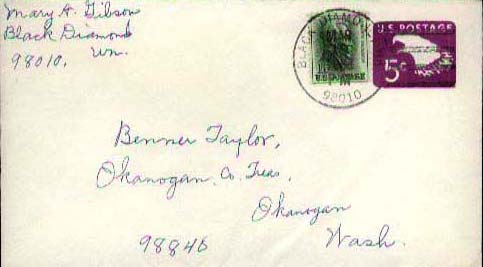 Mary A. Gibson
Black Diamond
98010. Wn.
BLACK DIAMOND
MAR
PM
98010
U.S. POSTAGE
5c
Benner Taylor,
Okanogan, Co. Treas,
Okanogan
Wash.
98840